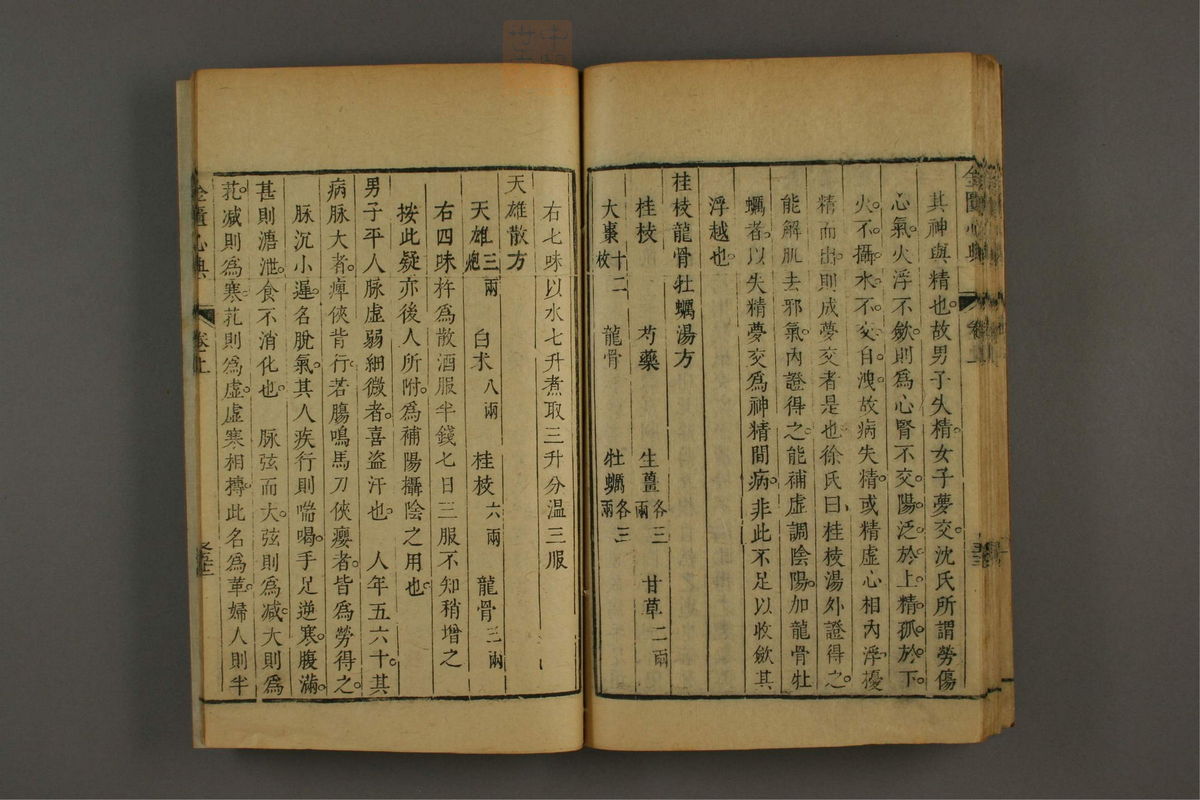 其神與精也故男子失精女子夢交沈氏所謂勞傷
心氣火浮不斂則爲心腎不交陽泛於上精孤於下
火不攝水不交自洩故病失精或精虛心相內浮擾
精而出則成夢交者是也徐氏曰桂枝湯外證得之
能解肌去邪氣內證得之能補虛調陰陽加龍骨牡
蠣者以失精夢交爲神精間病非此不足以收歛其
浮越也
桂枝龍骨牡蠣湯方
桂枝 芍藥 生薑各三兩 甘草二兩
大棗十二枚 龍骨 牡蠣各三兩
右七味以水七升煮取三升分温三服
天雄散方
天雄三兩炮 白朮八兩 桂枝六兩 龍骨三兩
右四味杵爲散酒服半錢匕日三服不知稍增之
按此疑亦後人所附爲補陽攝陰之用也
男子平人脉虛弱細微者喜盗汗也 人年五六十其
病脉大者痺俠背行若腸鳴馬刀俠癭者皆爲勞得之
脉沉小遲名脫氣其人疾行則喘喝手足逆寒腹滿
甚則溏泄食不消化也 脉弦而大弦則爲减大則爲
芤减則爲寒芤則爲虛虛寒相搏此名爲革婦人則半
金匱心典 卷上